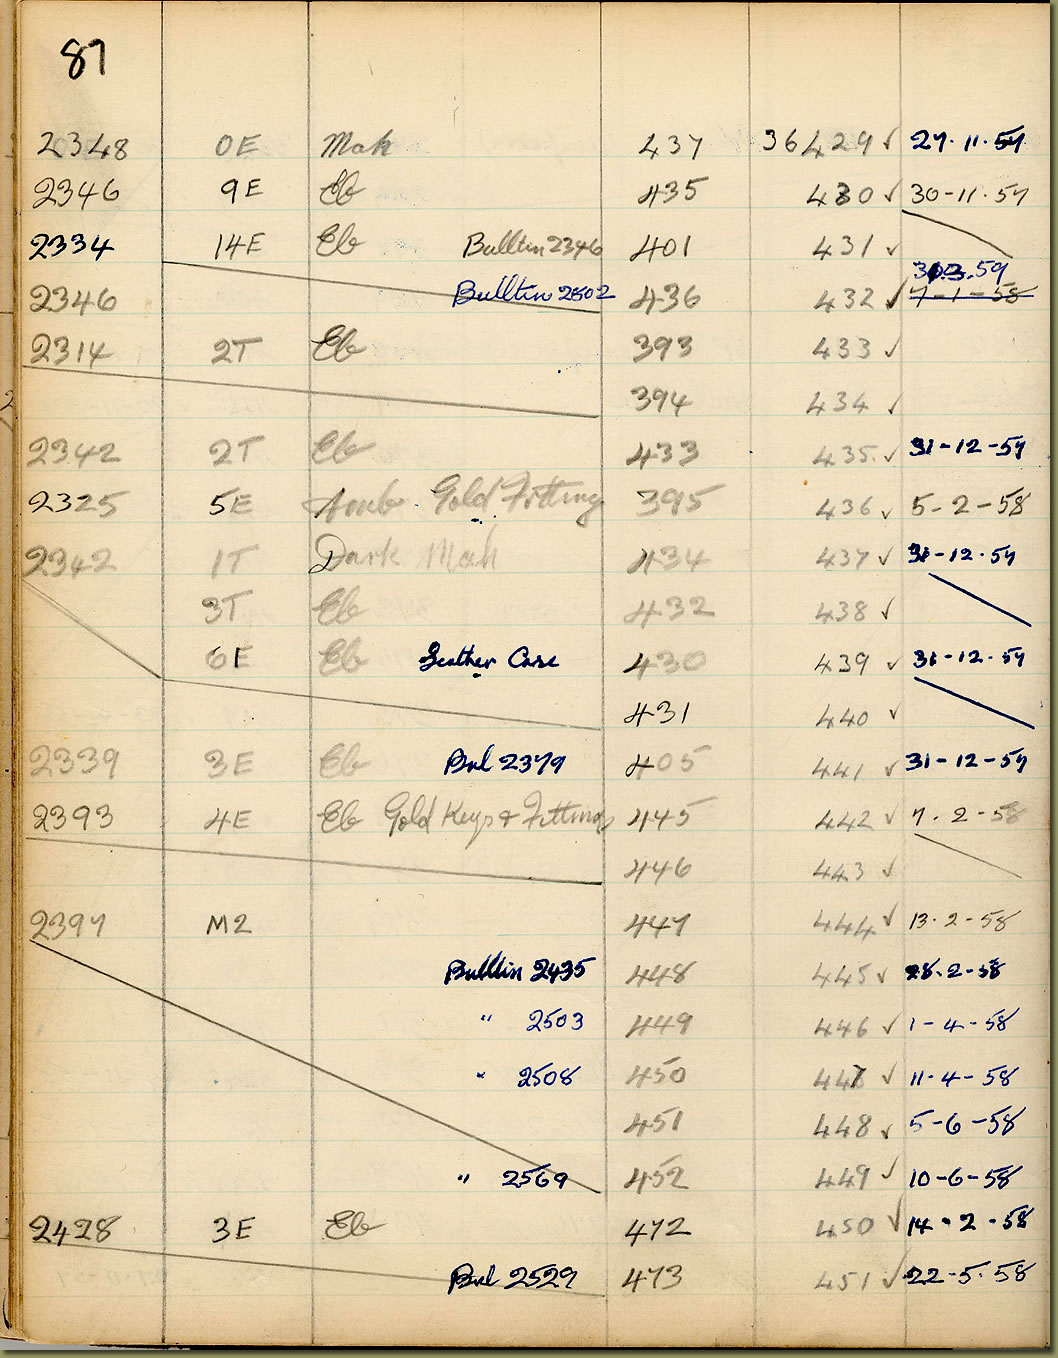 87
2348 0E Mah 437 36429 ✓ 27.11.57
2346 9E Eb 435 430 ✓ 30-11-57
2334 14E Eb Bulltin 2346 401 431 ✓
30.3.59
2346 Bulltin 2502 436 432 ✓ 7-1-58
2314 2T Eb 393 433 ✓
394 434 ✓
2342 2T Eb 433 435 ✓ 31-12-57
2325 5E Amb Gold Fitting 395 436 ✓ 5-2-58
2342 1T Dark Mah 434 437 ✓ 31-12-57
3T Eb 432 438 ✓
6E Eb Leather Case 430 439 ✓ 31-12-57
431 440 ✓
2339 3E Eb Bul 2379 405 441 ✓ 31-12-57
2393 4E Eb Gold Keys & Fittings 445 442 ✓ 7-2-58
446 443 ✓
2397 M2 447 444 ✓ 13-2-58
Bulltin 2435 448 445 ✓ 28-2-58
" 2503 449 446 ✓ 1-4-58
" 2508 450 447 ✓ 11-4-58
451 448 ✓ 5-6-58
" 2569 452 449 ✓ 10-6-58
2428 3E Eb 472 450 ✓ 14-2-58
Bul 2529 473 451 ✓ 22-5-58